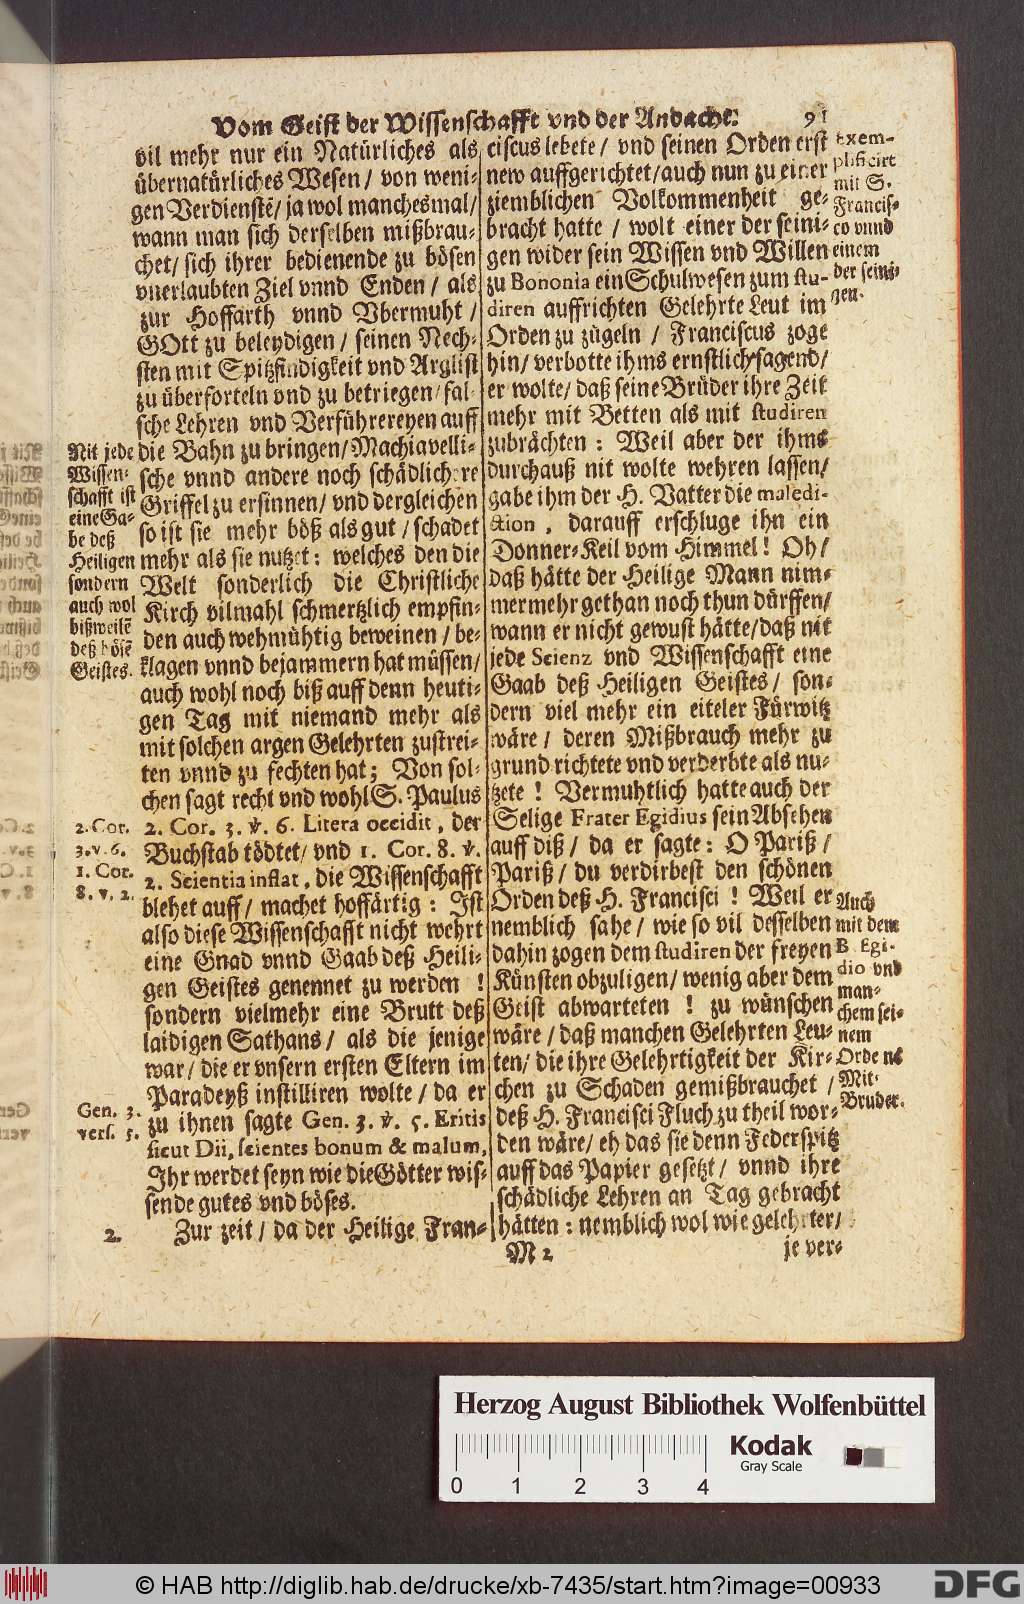 Vom Geist der Wissenschafft vnd der Andacht. 91
vil mehr nur ein Natürliches als
übernatürliches Wesen / von weni-
gen Verdienstē / ja wol manchesmal /
wann man sich derselben mißbrau-
chet / sich ihrer bedienende zu bösen
vnerlaubten Ziel vnnd Enden / als
zur Hoffarth vnnd Vbermuht /
GOtt zu beleydigen / seinen Nech-
sten mit Spitzfindigkeit vnd Arglist
zu überforteln vnd zu betriegen / fal-
sche Lehren vnd Verführereyen auff
die Bahn zu bringen / Machiavelli-
sche vnnd andere noch schädlichere
Griffel zu ersinnen / vnd dergleichen
so ist sie mehr böß als gut / schadet
mehr als sie nutzet : welches den die
Welt sonderlich die Christliche
Kirch vilmahl schmertzlich empfin-
den auch wehmühtig beweinen / be-
klagen vnnd bejammern hat müssen /
auch wohl noch biß auff denn heuti-
gen Tag mit niemand mehr als
mit solchen argen Gelehrten zustrei-
ten vnnd zu fechten hat ; Von sol-
chen sagt recht vnd wohl S. Paulus
2. Cor. 3. v. 6. Litera occidit, der
Buchstab tödtet / vnd 1. Cor. 8. v.
2. Scientia inflat, die Wissenschafft
blehet auff / machet hoffärtig : Ist
also diese Wissenschafft nicht wehrt
eine Gnad vnnd Gaab deß Heili-
gen Geistes genennet zu werden !
sondern vielmehr eine Brutt deß
laidigen Sathans / als die jenige
war / die er vnsern ersten Eltern im
Paradeyß instilliren wolte / da er
zu ihnen sagte Gen. 3. v. 5. Eritis
sicut Dii, scientes bonum & malum,
Ihr werdet seyn wie die Götter wis-
sende gutes vnd böses.
Zur zeit / da der Heilige Fran-
Nit jede
Wissen-
schafft ist
eine Ga-
be deß
Heiligen
sondern
auch wol
bißweilē
deß bösē
Geistes.
2. Cor.
3. v. 6.
1. Cor.
8. v. 2.
Gen. 3.
vers. 5.
2.
ciscus lebete / vnd seinen Orden erst
new auffgerichtet / auch nun zu einer
ziemblichen Volkommenheit ge-
bracht hatte / wolt einer der seini-
gen wider sein Wissen vnd Willen
zu Bononia ein Schulwesen zum stu-
diren auffrichten Gelehrte Leut im
Orden zu zügeln / Franciscus zoge
hin / verbotte ihms ernstlich sagend /
er wolte / daß seine Brüder ihre Zeit
mehr mit Betten als mit studiren
zubrächten : Weil aber der ihms
durchauß nit wolte wehren lassen /
gabe ihm der H. Vatter die maledi-
ction, darauff erschluge ihn ein
Donner-Keil vom Himmel ! Oh /
daß hätte der Heilige Mann nim-
mermehr gethan noch thun dürffen /
wann er nicht gewust hätte / daß nit
jede Scienz vnd Wissenschafft eine
Gaab deß Heiligen Geistes / son-
dern viel mehr ein eiteler Fürwitz
wäre / deren Mißbrauch mehr zu
grund richtete vnd verderbte als nu-
tzete ! Vermuhtlich hatte auch der
Selige Frater Egidius sein Absehen
auff diß / da er sagte : O Pariß /
Pariß / du verdirbest den schönen
Orden deß H. Francisci ! Weil er
nemblich sahe / wie so vil desselben
dahin zogen dem studiren der freyen
Künsten obzuligen / wenig aber dem
Geist abwarteten ! zu wünschen
wäre / daß manchen Gelehrten Leu-
ten / die ihre Gelehrtigkeit der Kir-
chen zu Schaden gemißbrauchet /
deß H. Francisci Fluch zu theil wor-
den wäre / eh das sie denn Federspitz
auff das Papier gesetzt / vnnd ihre
schädliche Lehren an Tag gebracht
hätten : nemblich wol wie gelehrter /
exem-
plificirt
mit S.
Francis-
co vnnd
einem
der seini-
gen.
Auch
mit dem
B. Egi-
dio vnd
man-
chem sei-
nem
Ordens
Mit-
Bruder.
M 2 je ver-
Herzog August Bibliothek Wolfenbüttel
Kodak
Gray Scale
0 1 2 3 4
© HAB http://diglib.hab.de/drucke/xb-7435/start.htm?image=00933
DFG